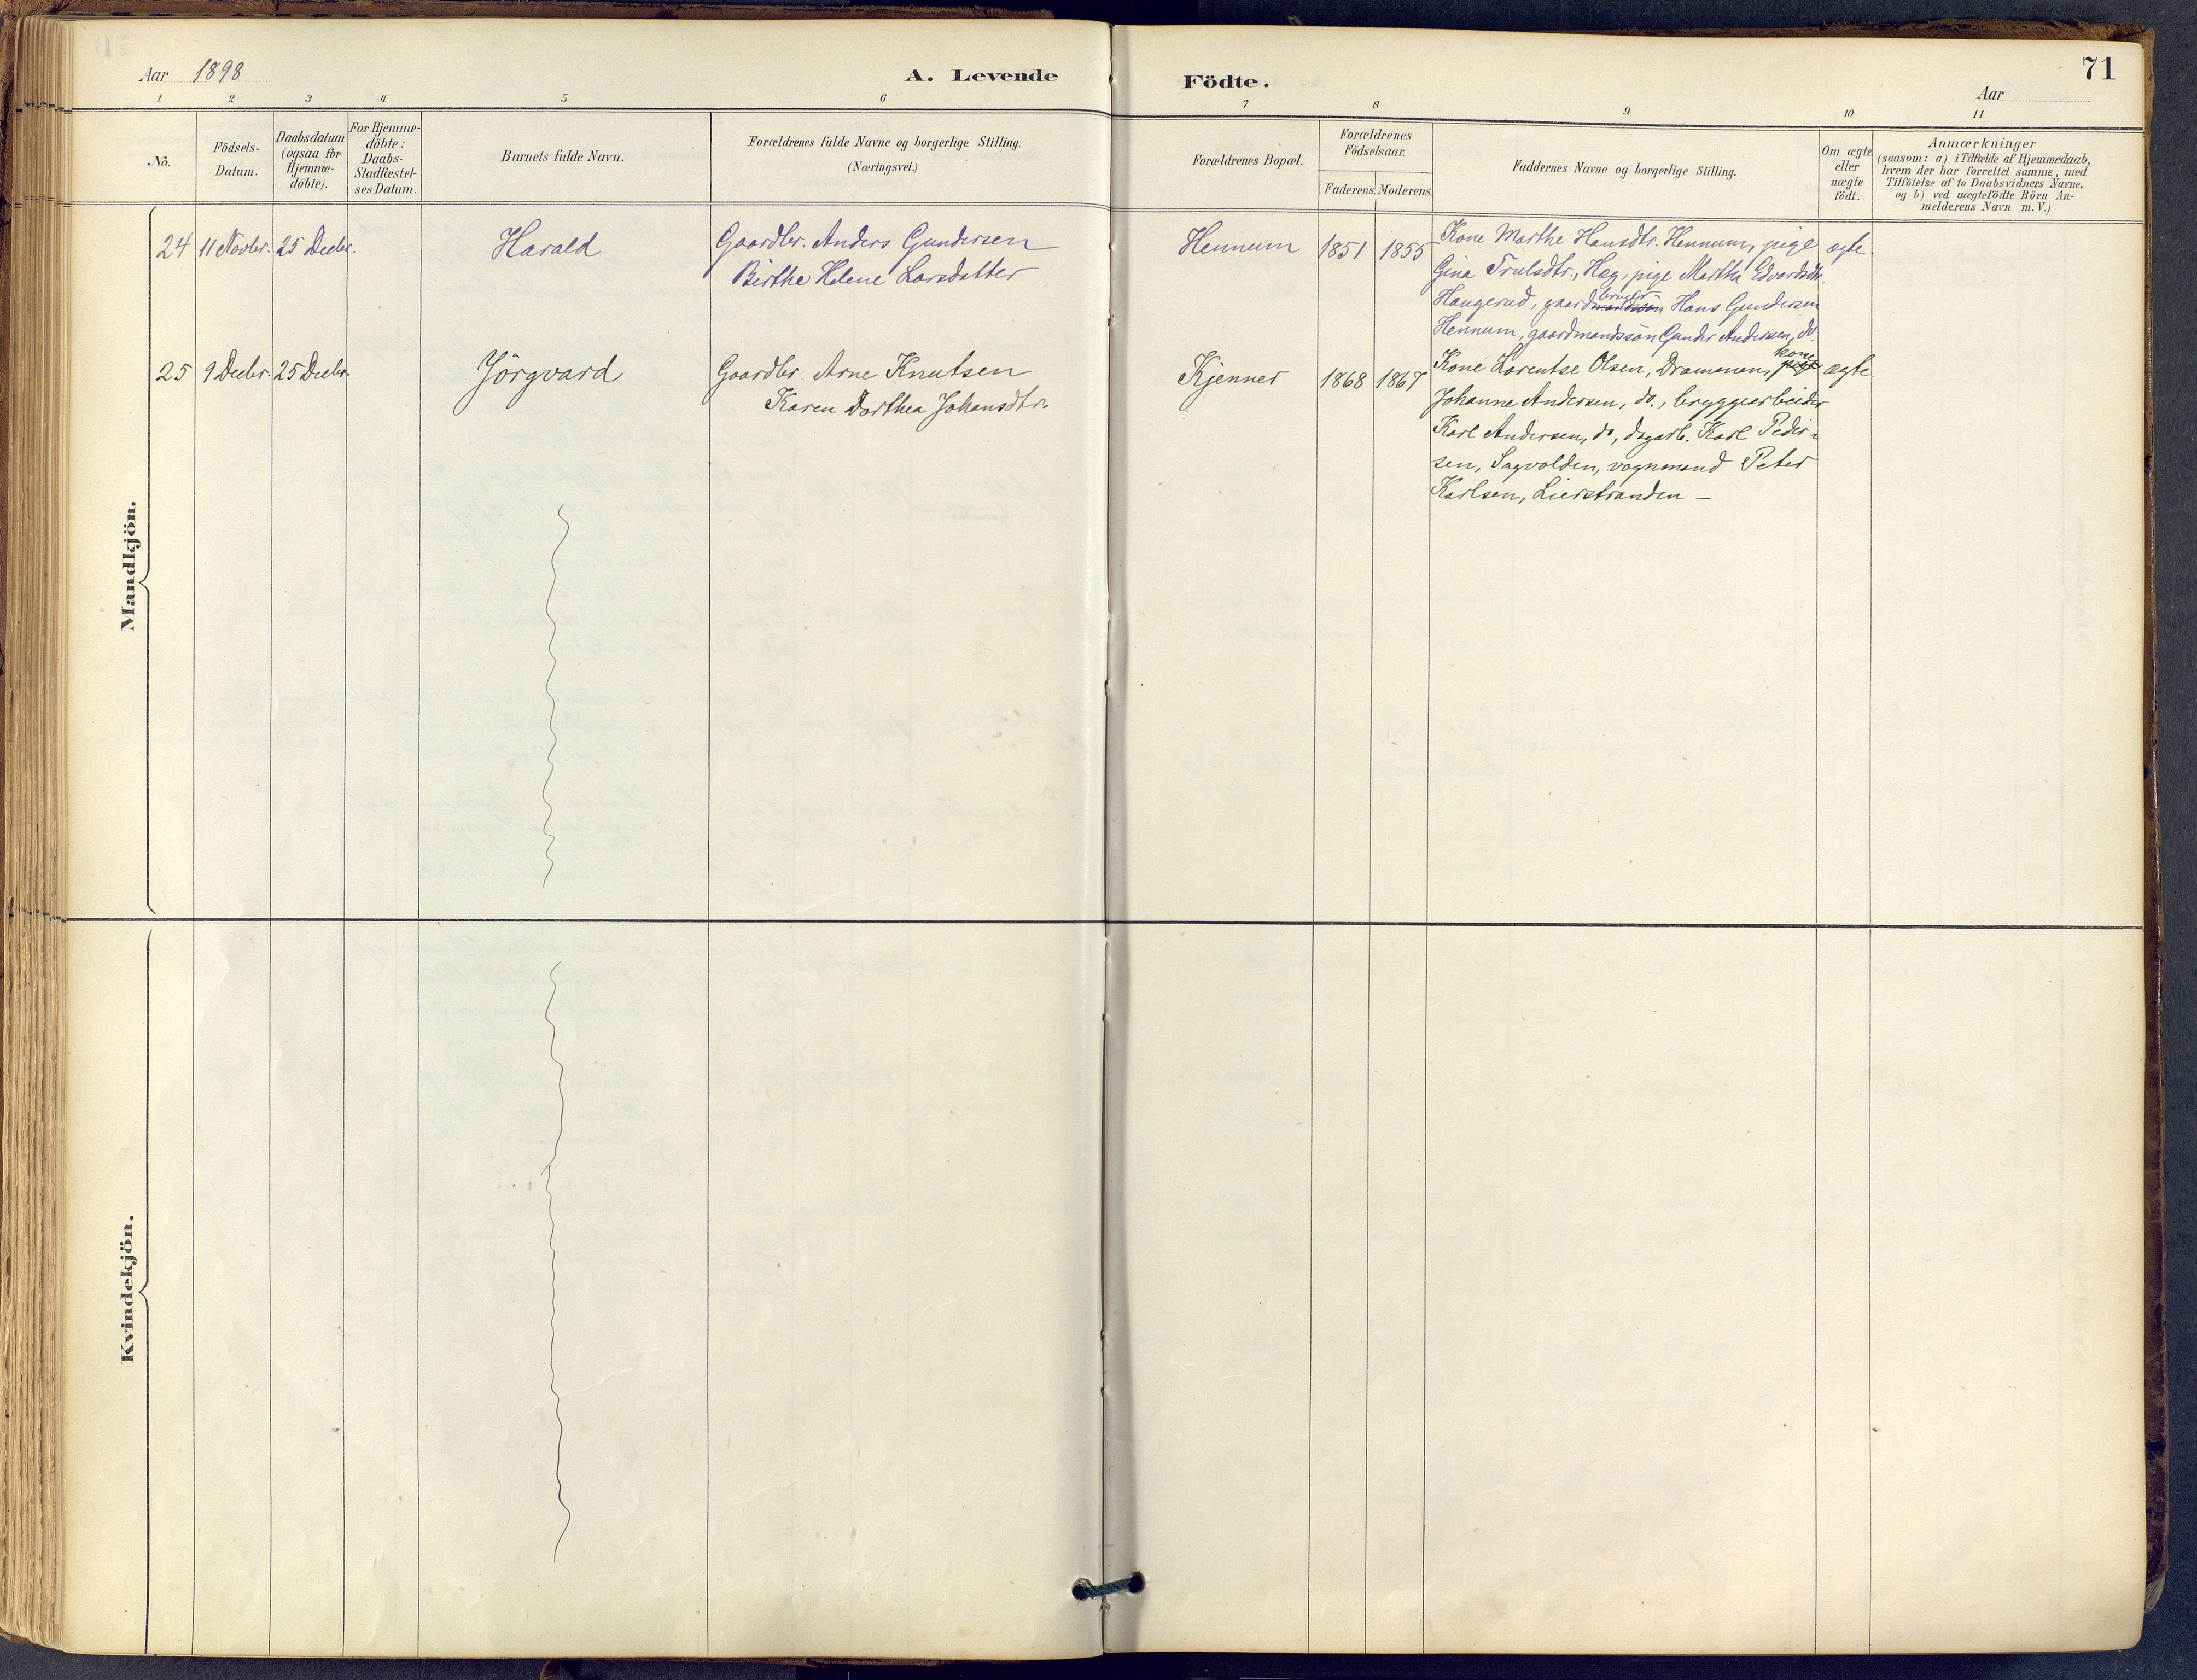 Aar 1898
A. Levende Födte.
71
Aar
1 2 3 4 5 6 7 8 9 10 11
No.
Födsels-
Datum.
Daabsdatum
(ogsaa for
Hjemme-
döbte).
For Hjemme-
döbte:
Daabs-
Stadfæstel-
ses Datum.
Barnets fulde Navn.
Forældrenes fulde Navne og borgerlige Stilling.
(Næringsvei.)
Forældrenes Bopæl.
Forældrenes
Födselsaar.
Faderens. Moderens.
Faddernes Navne og borgerlige Stilling.
Om ægte
eller
uægte
födt.
Anmærkninger
(saasom: a) i Tilfælde af Hjemmedaab,
hvem der har forrettet samme, med
Tilföielse af to Daabsvidners Navne.
og b) ved uægtefödte Börn An-
melderens Navn m. V.)
Mandkjön.
24 11 Novbr. 25 Decbr. Harald
Gaardbr. Anders Gundersen
Birthe Helene Larsdatter
Hennum 1851 1855
Kone Marthe Hansdtr. Hennum, pige
Gina Trulsdtr., Hæg, pige Martha Edvardsdtr.
Haugerud, gaardmandssön bruger Hans Gundersen
Hennum, gaardmandssön Gunder Andersen, do.
ægte
25 9 Decbr. 25 Decbr. Jörgvard
Gaardbr. Arne Knutsen
Karen Dorthea Johansdtr.
Kjenner 1868 1867
Kone Lorentse Olsen, Drammen, pige kone
Johanne Andersen, do., bryggearbeider
Karl Andersen, do, dagarb. Karl Peder-
sen, Sagvolden, vognmand Peter
Karlsen, Lierstranden –
ægte
Kvindekjön.